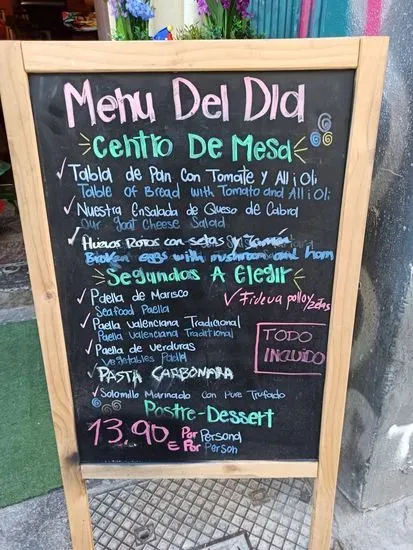 Menu Del Dia
Centro De Mesa
Tabla de Pan Con Tomate y All i Oli
Table of Bread with Tomato and All i Oli
Nuestra Ensalada de Queso de Cabra
Our goat Cheese Salad
Huevos Rotos con setas y Jamón
Broken eggs with mushroom and ham
Segundos A Elegir
Paella de Marisco
Seafood Paella
Fideua pollo/setas
Paella Valenciana Tradicional
Paella Valenciana Traditional
Paella de Verduras
Vegetables Paella
TODO
INCLUIDO
PASTA CARBONARA
Solomillo Marinado con Pure Trufado
Postre-Dessert
13,90 € Por Persona
Por Person